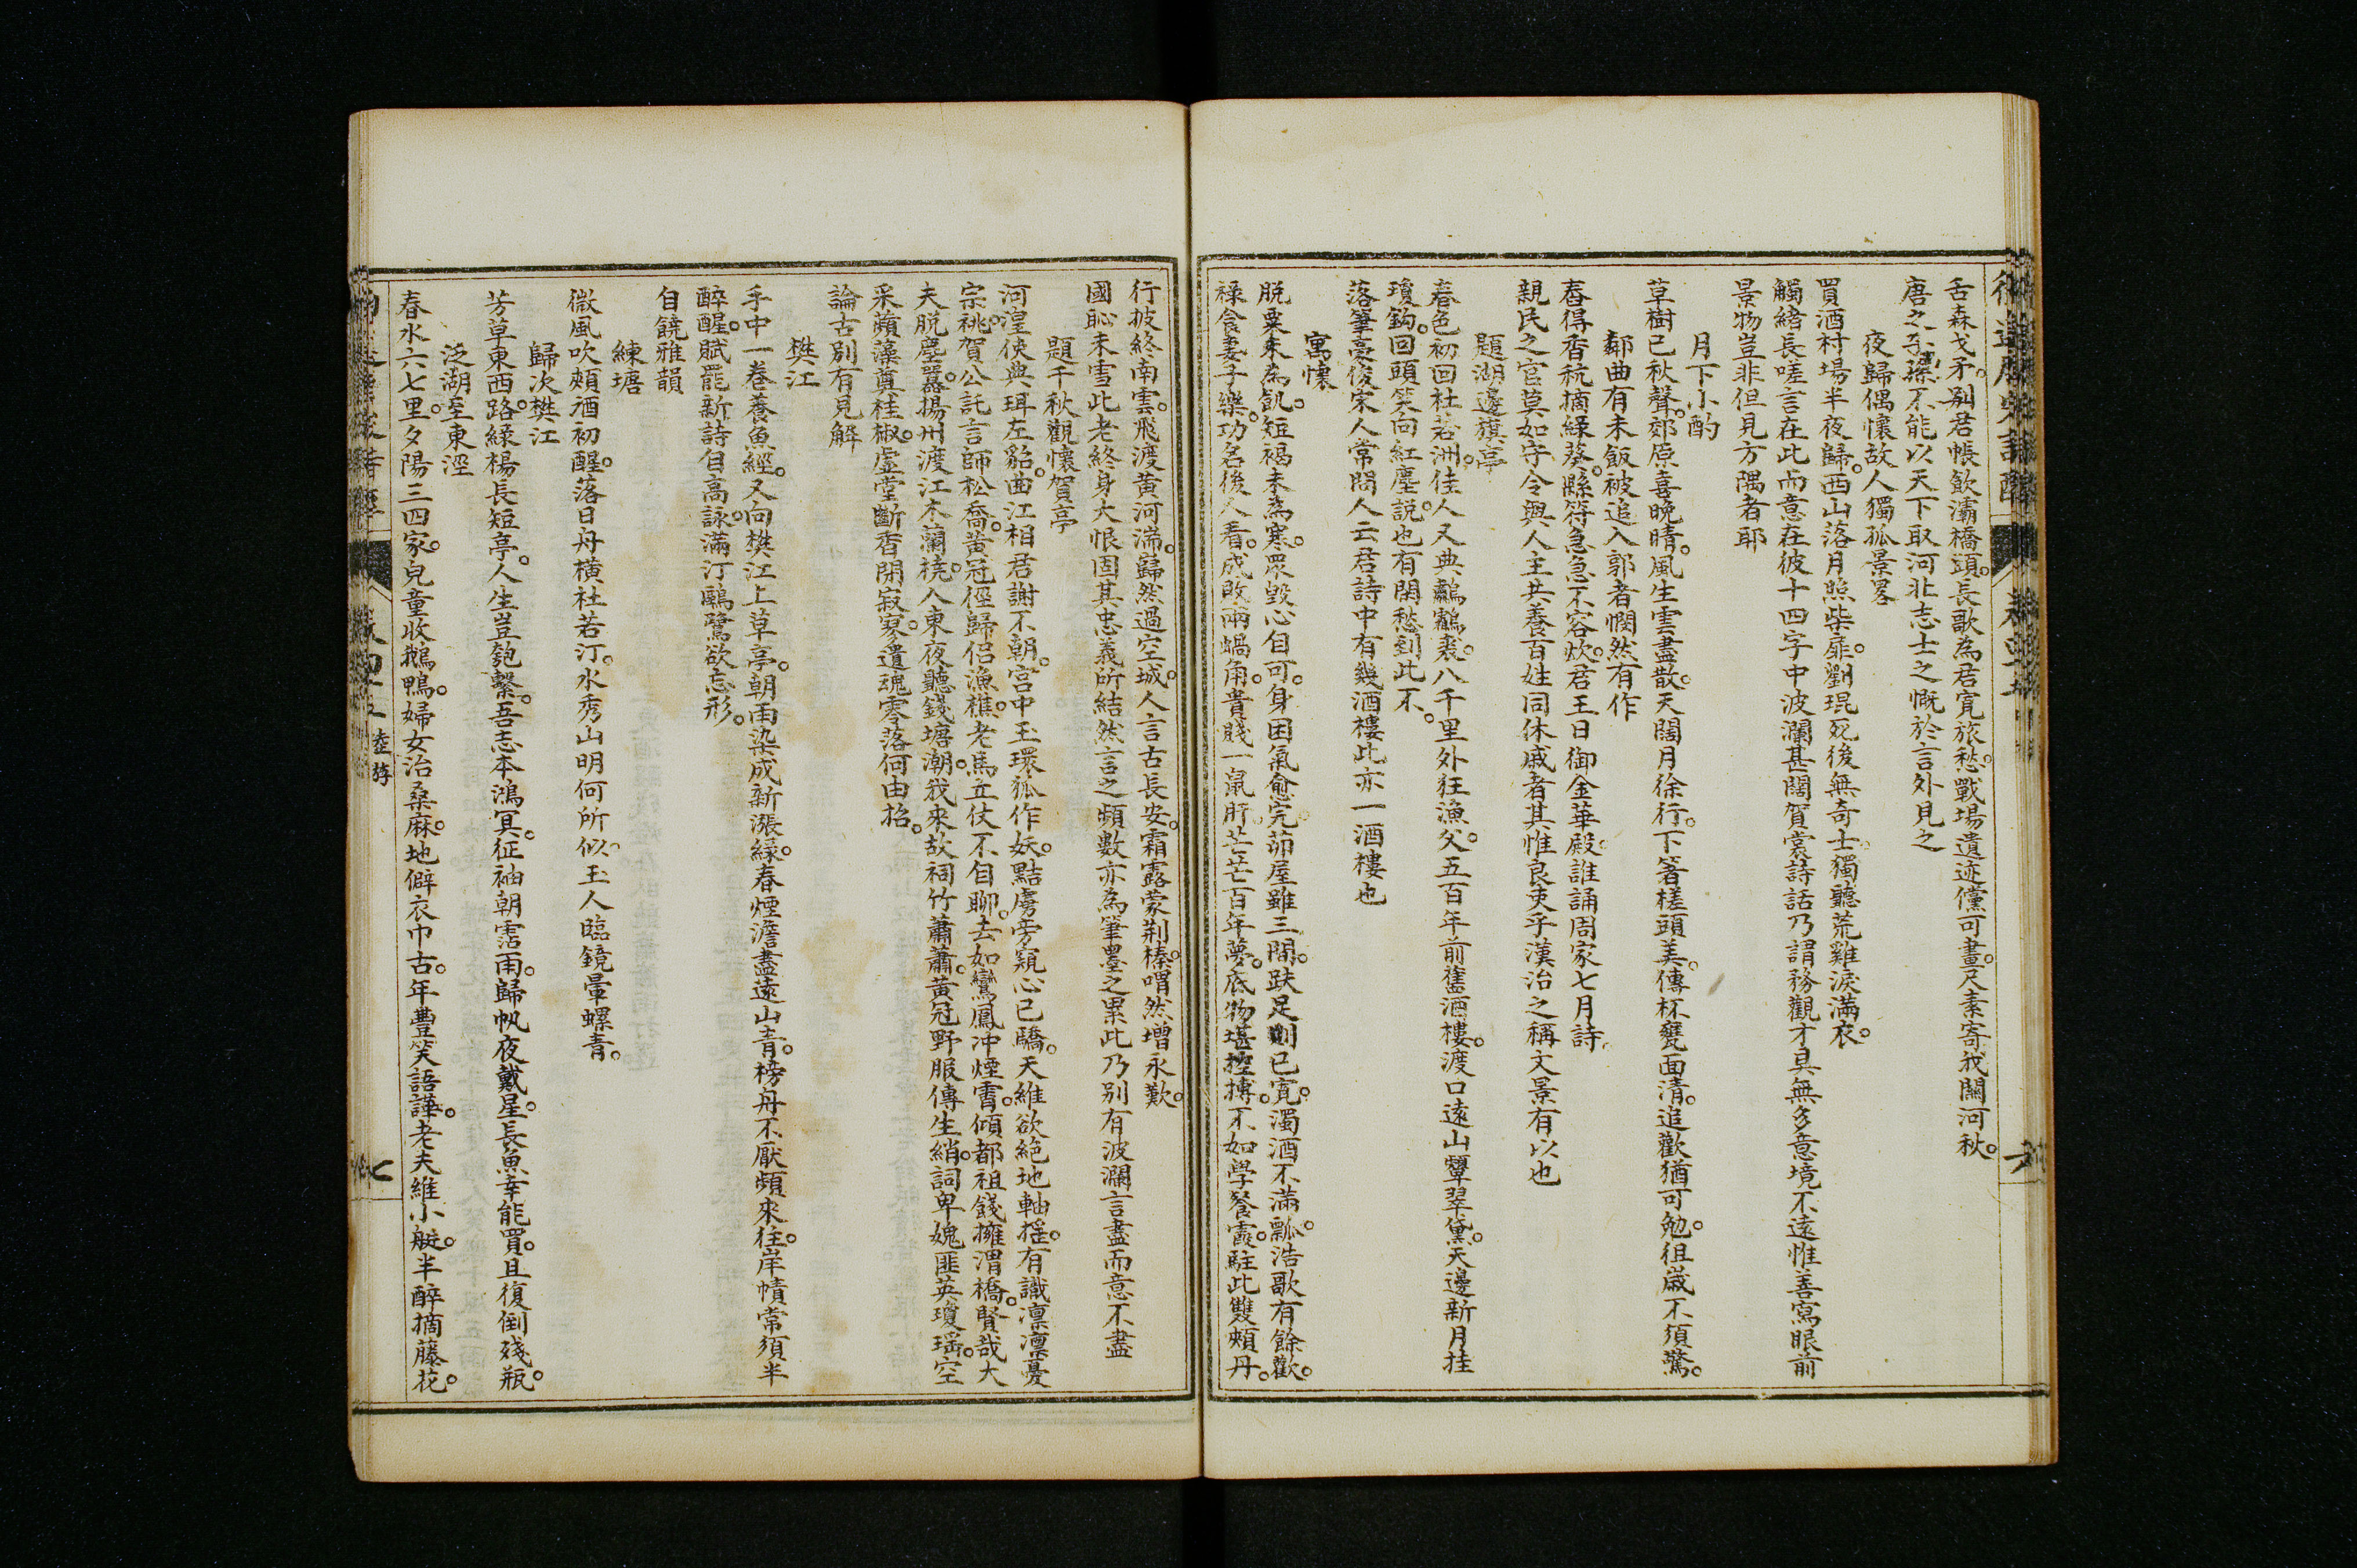 舌森戈矛。別君帳飲灞橋頭。長歌為君寬旅愁。戰場遺迹儻可畫。尺素寄我關河秋。
唐之不能以天下取河北志士之慨於言外見之
夜歸偶懷故人獨孤景略
買酒村場半夜歸。西山落月照柴扉。劉琨死後無奇士。獨聽荒雞淚滿衣。
觸緒長嗟言在此而意在彼十四字中波瀾甚闊賀裳詩話乃謂務觀才具無多意境不遠惟善寫眼前
景物豈非但見方隅者耶
月下小酌
草樹已秋聲。郊原喜晚晴。風生雲盡散。天闊月徐行。下箸槎頭美。傳杯甕面清。追歡猶可勉。徂歲不須驚。
鄰曲有未飯被追入郭者憫然有作
舂得香秔摘綠葵。縣符急急不容炊。君王日御金華殿。誰誦周家七月詩。
親民之官莫如守令與人主共養百姓同休戚者其惟良吏乎漢治之稱文景有以也
題湖邊旗亭
春色初回杜若洲。佳人又典鷫鸘裘。八千里外狂漁父。五百年前舊酒樓。渡口遠山顰翠黛。天邊新月挂
瓊鉤。回頭笑向紅塵說。也有閑愁到此不。
落筆豪俊宋人常問人云君詩中有幾酒樓此亦一酒樓也
寓懷
脫粟未為飢。短褐未為寒。眾毀心自可。身困氣愈完。茆屋雖三間。趺足則已寬。濁酒不滿瓢。浩歌有餘歡。
祿食妻子樂。功名後人看。成敗兩蝸角。貴賤一鼠肝。芒芒百年夢。底物堪控摶。不如學餐霞。駐此雙頰丹。
行披終南雲。飛渡黃河湍。歸然過空城。人言古長安。霜露蒙荊榛。喟然增永歎。
國恥未雪此老終身大恨固其忠義所結然言之頻數亦為筆墨之累此乃別有波瀾言盡而意不盡
題千秋觀懷賀亭
河湟使典珥左貂。曲江相君謝不朝。宮中玉環狐作妖。黠虜旁窺心已驕。天維欲絕地軸搖。有識凛凛憂
宗祧。賀公託言師松喬。黃冠徑歸侶漁樵。老馬立仗不自聊。去如鸞鳳冲煙霄。傾都祖錢擁渭橋。賢哉大
夫脫塵囂。揚州渡江木蘭橈。入東夜聽錢塘潮。我來故祠竹蕭蕭。黃冠野服傳生綃。詞卑媿匪英瓊瑤。空
采蘋藻奠桂椒。虛堂斷香閉寂寥。遺魂零落何由招。
論古別有見解
樊江
手中一卷養魚經。又向樊江上草亭。朝雨染成新漲綠。春煙澹盡遠山青。榜舟不厭頻來往。岸幘常須半
醉醒。賦罷新詩自高詠。滿汀鷗鷺欲忘形。
自饒雅韻
練塘
微風吹頰酒初醒。落日舟橫杜若汀。水秀山明何所似。玉人臨鏡暈螺青。
歸次樊江
芳草東西路。綠楊長短亭。人生豈匏繫。吾志本鴻冥。征袖朝霑雨。歸帆夜戴星。長魚幸能買。且復倒殘瓶。
泛湖至東涇
春水六七里。夕陽三四家。兒童收鵝鴨。婦女治桑麻。地僻衣巾古。年豐笑語譁。老夫維小艇。半醉摘藤花。
陸游
七